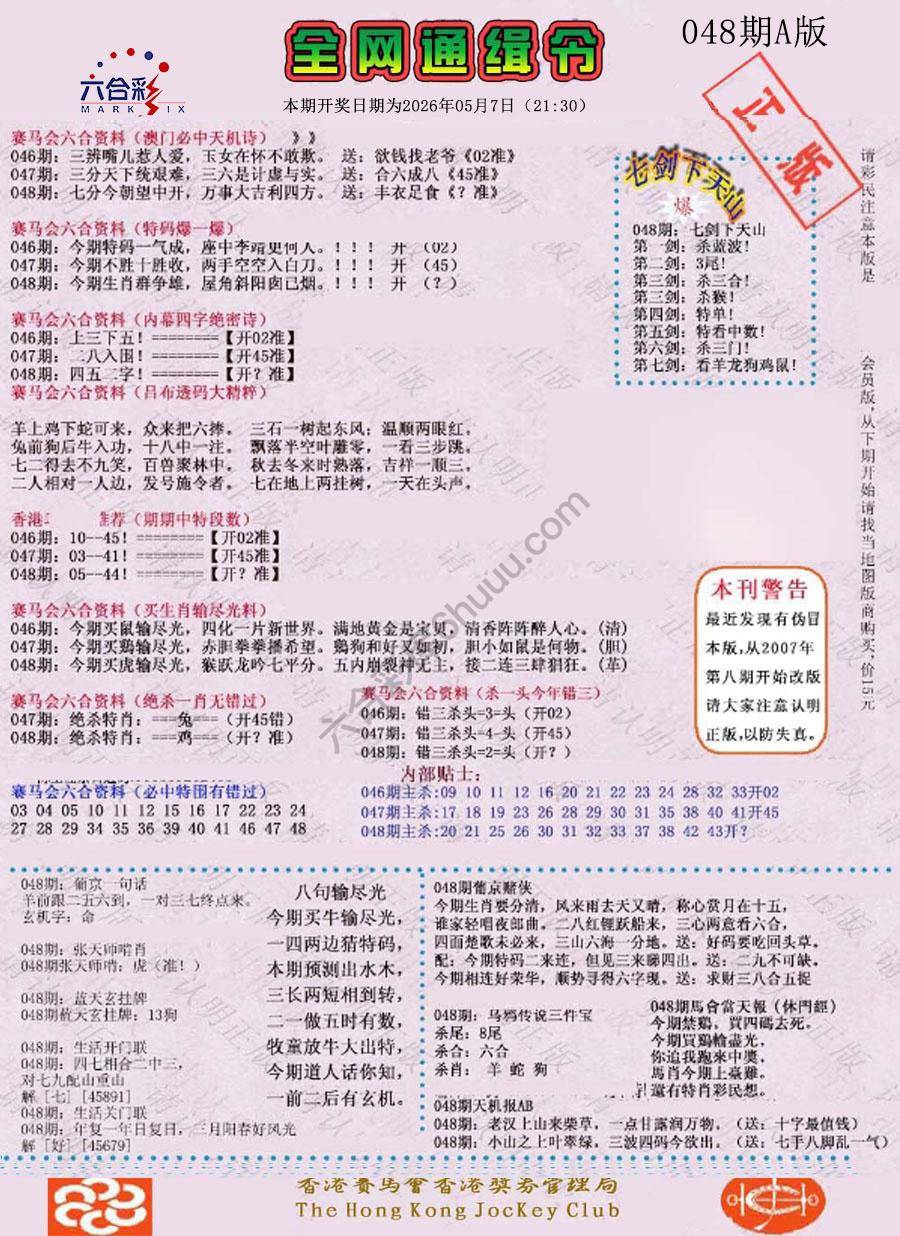 全网通缉令
048期A版
六合彩
MARK SIX
本期开奖日期为2026年05月7日（21:30）
正版
赛马会六合资料（澳门必中天机诗） 》》
046期：三辨嘴儿惹人爱，玉女在怀不敢欺。 送：欲钱找老爷《02准》
047期：三分天下统艰难，三六是计虚与实。 送：合六成八《45准》
048期：七分今朝望中开，万事大吉利四方。 送：丰衣足食《？准》
赛马会六合资料（特码爆一爆）
046期：今期特码一气成，座中李靖更何人。！！！ 开 （02）
047期：今期不胜十胜收，两手空空入白刀。！！！ 开 （45）
048期：今期生肖群争雄，屋角斜阳囱已烟。！！！ 开 （？）
赛马会六合资料（内幕四字绝密诗）
046期：上三下五！========【开02准】
047期：二八入围！========【开45准】
048期：四五二字！========【开？准】
赛马会六合资料（吕布透码大精粹）
羊上鸡下蛇可来，众来把六捧。 三石一树起东风；温顺两眼红。
兔前狗后牛入功，十八中一注。 飘落半空叶雕零，一看三步跳。
七二得去不九笑，百兽聚林中。 秋去冬来时熟落，吉祥一顺三。
二人相对一人边，发号施令者。 七在地上两挂树，一天在头声。
香港 推荐（期期中特段数）
046期：10--45！========【开02准】
047期：03--41！========【开45准】
048期：05--44！========【开？准】
赛马会六合资料（买生肖输尽光料）
046期：今期买鼠输尽光，四化一片新世界。满地黄金是宝贝，清香阵阵醉人心。(清)
047期：今期买鸡输尽光，赤胆拳拳播希望。鸡狗和好又如初，胆小如鼠是何物。(胆)
048期：今期买虎输尽光，猴跃龙吟七平分。五内崩裂神无主，接二连三肆猖狂。(革)
赛马会六合资料（绝杀一肖无错过）
047期：绝杀特肖：===兔===（开45错）
048期：绝杀特肖：===鸡===（开？准）
赛马会六合资料（杀一头今年错三）
046期：错三杀头=3=头（开02）
047期：错三杀头-4-头（开45）
048期：错三杀头=2=头（开？）
赛马会六合资料（必中特围有错过）
03 04 05 10 11 12 15 16 17 22 23 24
27 28 29 34 35 36 39 40 41 46 47 48
内部贴士：
046期主杀:09 10 11 12 16 20 21 22 23 24 28 32 33开02
047期主杀:17 18 19 23 26 28 29 30 31 35 38 40 41开45
048期主杀:20 21 25 26 30 31 32 33 37 38 42 43开?
七剑下天山
爆
048期：七剑下天山
第一剑：杀蓝波！
第二剑：3尾！
第三剑：杀三合！
第三剑：杀猴！
第四剑：特单！
第五剑：特看中数！
第六剑：杀三门！
第七剑：看羊龙狗鸡鼠！
请彩民注意本版是
会员版,从下期开始请找当地图版商购买,价15元
本刊警告
最近发现有伪冒
本版,从2007年
第八期开始改版
请大家注意认明
正版,以防失真。
六合彩zhuuu.com
048期：葡京一句话
羊前跟二五六到，一对三七终点来。
玄机字：命
048期：张天师哨肖
048期张天师哨：虎（准！）
048期：蓝天玄挂牌
048期蓝天玄挂牌：13狗
048期：生活开门联
048期：四七相合二中三，
对七九配山重山
解［七］[45891]
048期：生活关门联
048期：年复一年日复日，三月阳春好风光
解［好］[45679]
八句输尽光
今期买牛输尽光，
一四两边猜特码，
本期预测出水木，
三长两短相到转，
二一做五时有数，
牧童放牛大出特，
今期道人话你知，
一前二后有玄机。
048期葡京赌侠
今期生肖要分清，风来雨去天又晴，称心赏月在十五，
谁家轻唱夜部曲。二八红锂跃船来，三心两意看六合，
四面楚歌未必来，三山六海一分地。送：好码要吃回头草。
配：今期特码二来连，但见三来睇四出。送：二九不可缺。
今期相连好荣华，顺势寻得六字现。送：求财三八合五捉
048期：乌鸦传说三件宝
杀尾：8尾
杀合：六合
杀肖： 羊 蛇 狗
048期馬會當天報（休門經）
今期禁鷄，買四碼去死。
今期買鷄輸盡光，
你追我跑來中奬。
馬肖今期上臺難。
還有特肖彩民想。
048期天机报AB
048期：老汉上山来柴草，一点甘露润万物。（送：十字最值钱）
048期：小山之上叶翠绿，三波四码今欲出。（送：七手八脚乱一气）
香港賽馬會香港獎券管理局
The Hong Kong JocKey Club